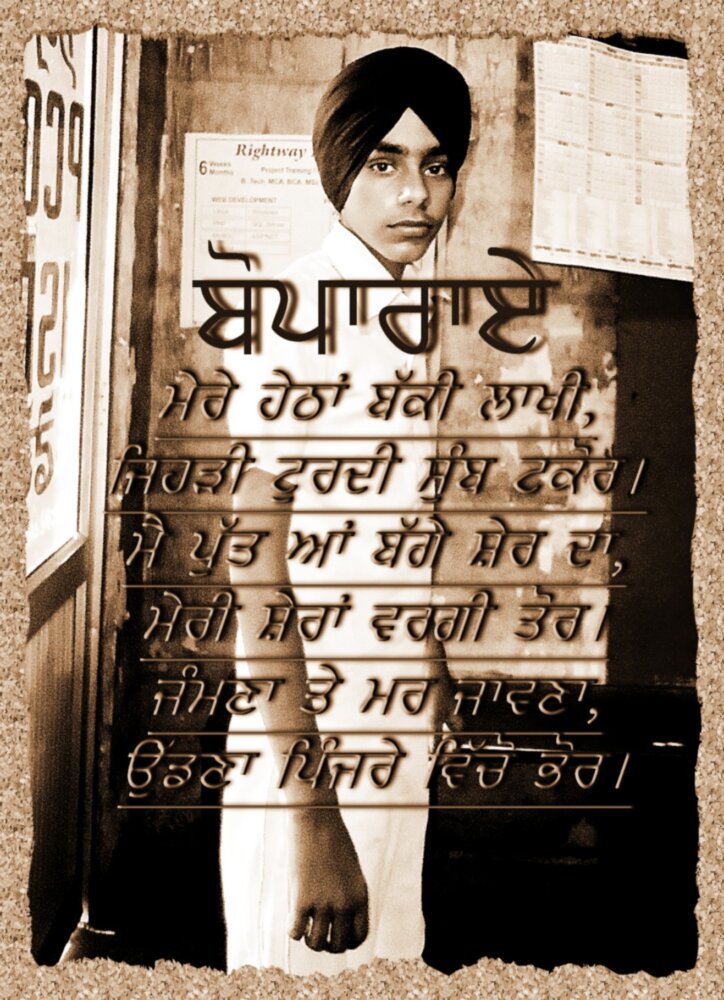 Rightway
6 Weeks
Months
Project Training
B. Tech, MCA, BCA, MSc
WEB DEVELOPMENT
ਬੋਪਾਰਾਏ
ਮੇਰੇ ਹੇਠਾਂ ਬੱਕੀ ਲਾਖੀ,
ਜਿਹੜੀ ਟੁਰਦੀ ਸੁੰਬ ਟਕੋਰ।
ਮੈ ਪੁੱਤ ਆਂ ਬੱਗੇ ਸ਼ੇਰ ਦਾ,
ਮੇਰੀ ਸ਼ੇਰਾਂ ਵਰਗੀ ਤੋਰ।
ਜੰਮਣਾ ਤੇ ਮਰ ਜਾਵਣਾ,
ਉੱਡਣਾ ਪਿੰਜਰੇ ਵਿੱਚੋ ਭੋਰ।